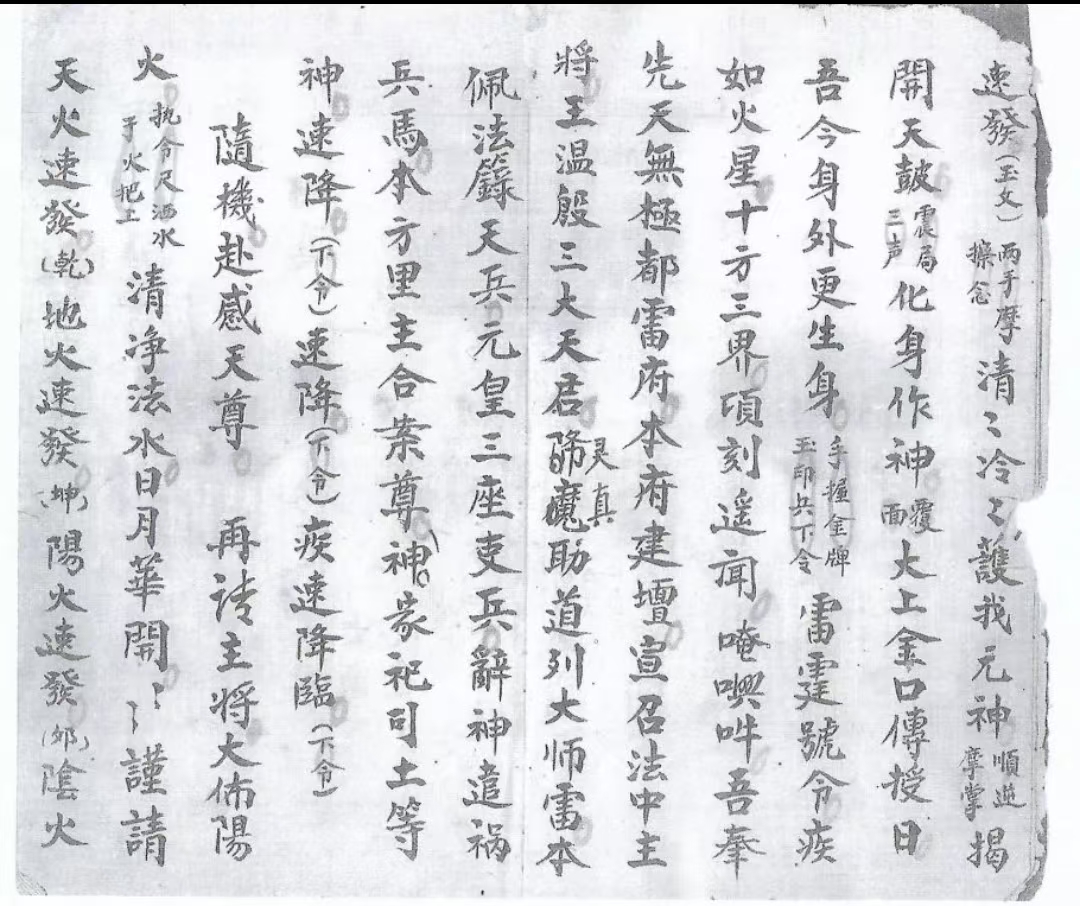 速發（玉文）两手摩擦念清〻冷〻護我元神順逆摩掌揭
開天鼓震局三声化身作神覆面大上金口傳授日
吾今身外更生身手握金牌玉印兵下令雷霆號令疾
如火星十方三界頃刻遥闻唵㘕吽吾奉
先天無極都雷府本府建壇宣召法中主
將王温殷三大天君灵真魔助道列大师雷本
佩法籙天兵元皇三座吏兵辭神遣祸
兵馬本方里主合案尊神家祀司土等
神速降（下令）速降（下令）疾速降臨（下令）
隨機赴感天尊 再请主将大佈陽
火执令尺洒水于火把上清净法水日月華開〻謹請
天火速發（乾）地火速發（坤）陽火速發（卯）陰火